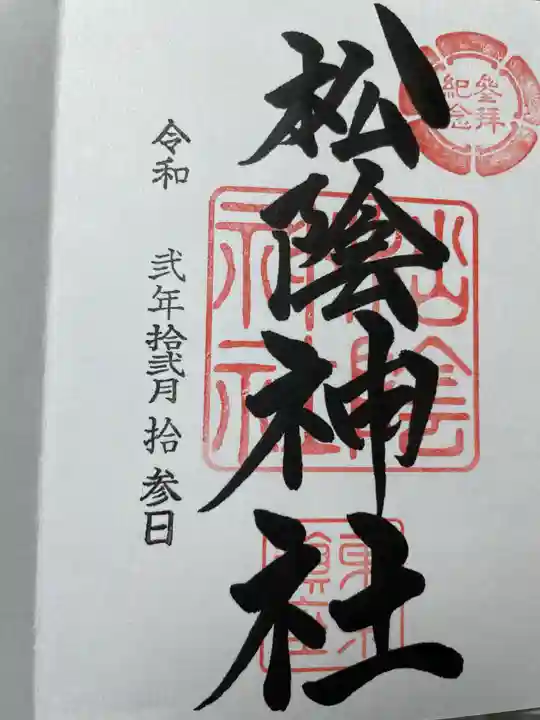 參拜
紀念
松陰神社
松陰
神社
令和 弐年拾弐月拾参日